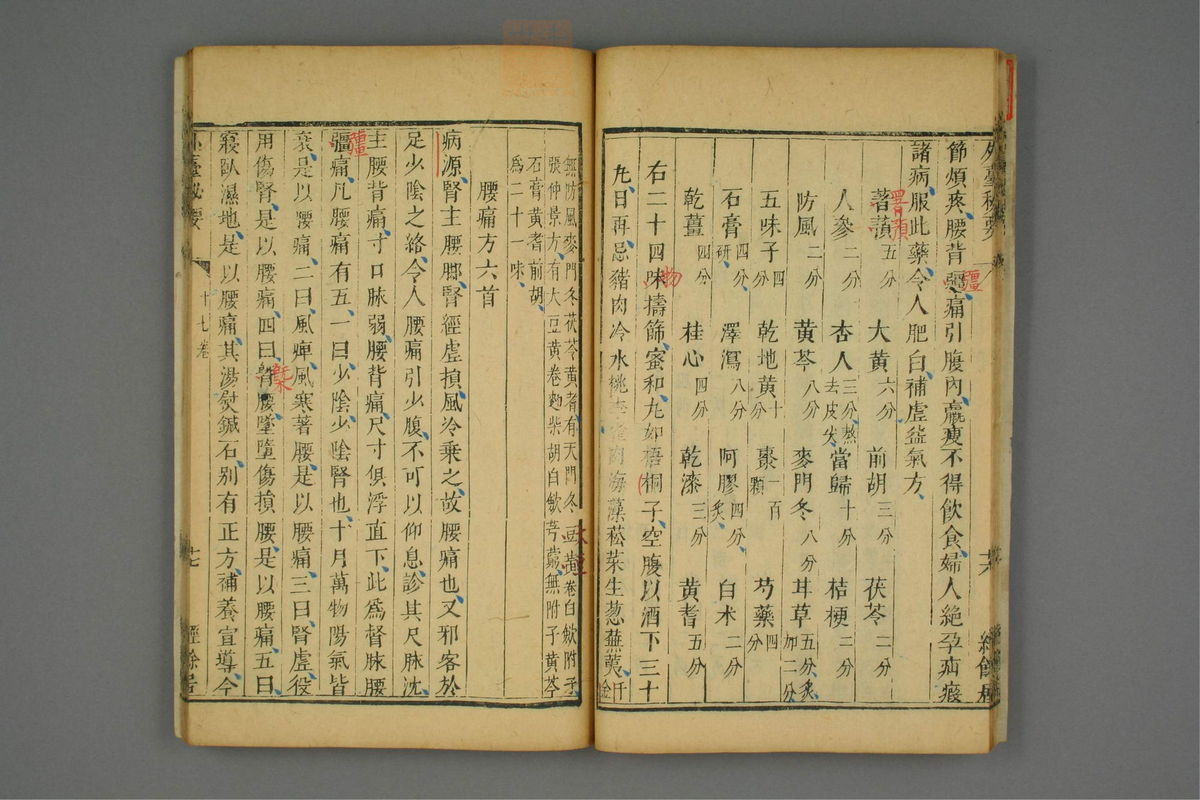 節煩疼腰背彊痛引腹內羸瘦不得飲食婦人絶孕疝瘕
疆
諸病服此藥令人肥白補虛益氣方
薯蕷五分 大黃六分 前胡三分 茯苓二分
人參二分 杏人三分熬去皮尖 當歸十分 桔梗二分
防風二分 黃芩八分 麥門冬八分 甘草五分炙加二分
五味子四分 乾地黃十分 棗一百顆 芍藥四分
石膏四分研 澤瀉八分 阿膠四分炙 白朮二分
乾薑四分 桂心四分 乾漆三分 黃耆五分
右二十四味擣篩蜜和丸如梧桐子空腹以酒下三十
物
丸日再忌豬肉冷水桃李雀肉海藻菘菜生葱蕪荑
無防風麥門冬茯苓黃耆有天門冬
豆黃卷白歛附子
張仲景方有大豆黃卷麴柴胡白歛
無附子黃芩
石膏黃耆前胡
爲二十一味
腰痛方六首
病源腎主腰脚腎經虛損風冷乗之故腰痛也又邪客於
足少陰之絡令人腰痛引少腹不可以仰息診其尺脉沈
主腰背痛寸口脉弱腰背痛尺寸俱浮直下此爲督脉腰
彊痛凡腰痛有五一曰少陰少陰腎也十月萬物陽氣皆
疆
衰是以腰痛二曰風痺風寒著腰是以腰痛三曰腎虛役
用傷腎是以腰痛四曰䐴腰墜墮傷損腰是以腰痛五曰
寢臥濕地是以腰痛其湯熨鍼石别有正方補養宣導今
十七卷
十七
經餘居